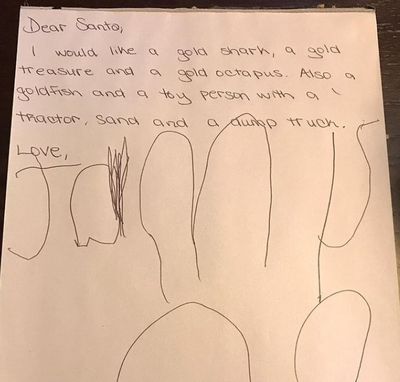 Dear Santa,
I would like a gold shark, a gold
treasure and a gold octapus. Also a
goldfish and a toy person with a
tractor, sand and a dump truck.
Love,